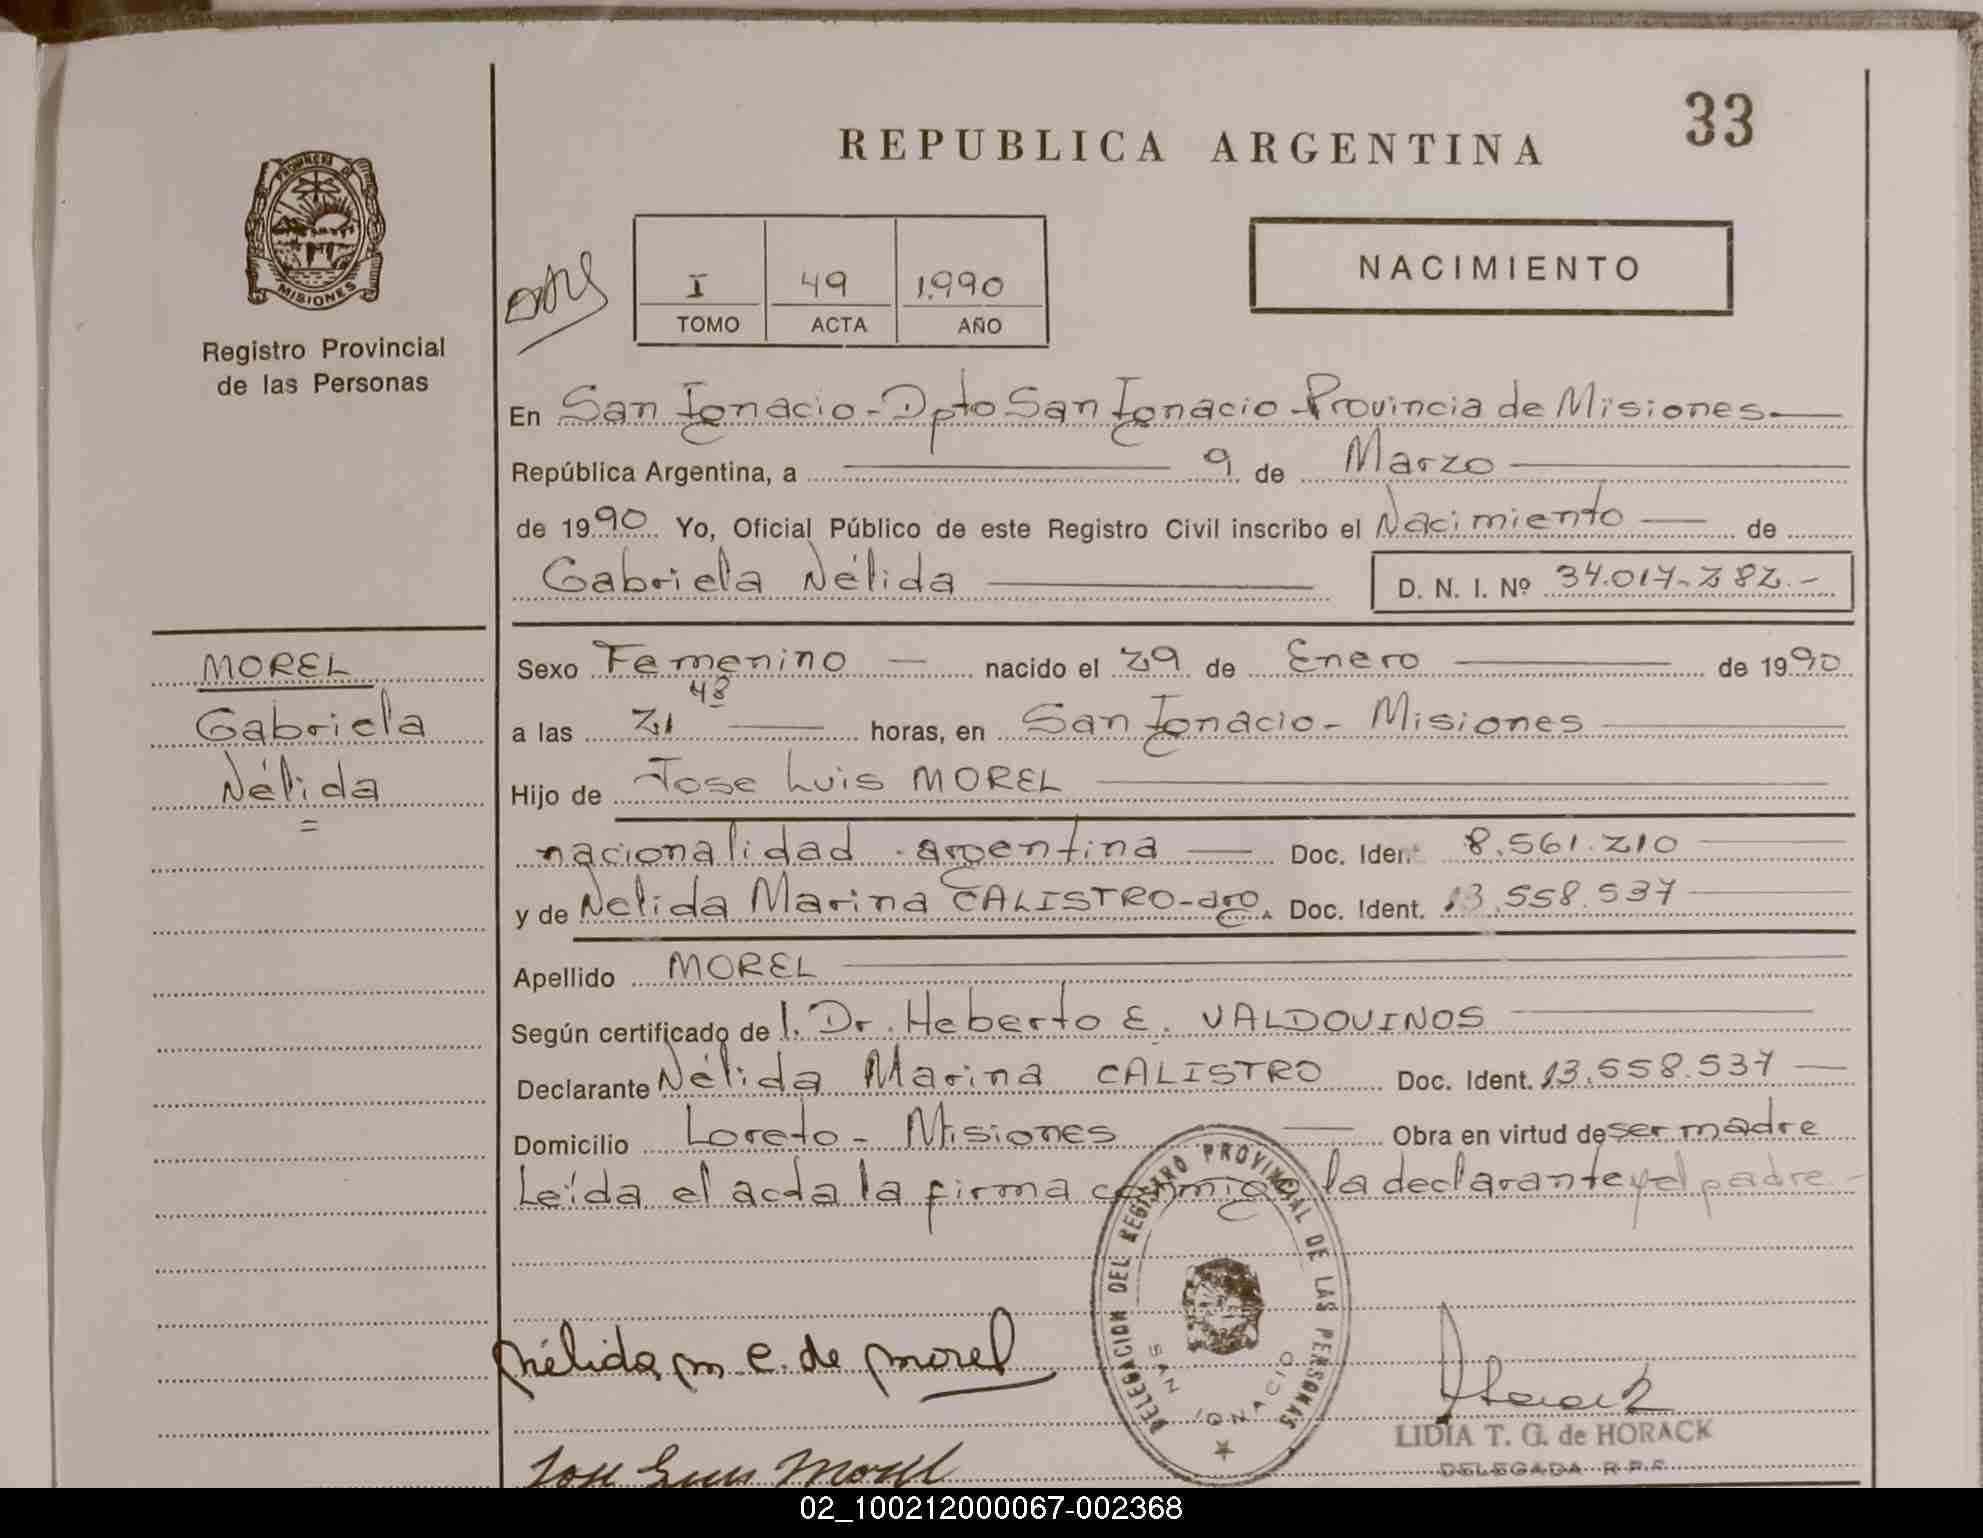 33
REPUBLICA ARGENTINA
PROVINCIA DE
MISIONES
Registro Provincial
de las Personas
I 49 1.990
TOMO ACTA AÑO
NACIMIENTO
En San Ignacio-Dpto San Ignacio-Provincia de Misiones
República Argentina, a 9 de Marzo
de 1990 Yo, Oficial Público de este Registro Civil inscribo el Nacimiento de
Gabriela Nélida D. N. I. Nº 34.017.282.-
MOREL
Gabriela
Nélida
Sexo Femenino nacido el 29 de Enero de 1990
a las 21 48 horas, en San Ignacio- Misiones
Hijo de Jose Luis MOREL
nacionalidad argentina Doc. Ident. 8.561.210
y de Nelida Marina CALISTRO-arg. Doc. Ident. 13.558.537
Apellido MOREL
Según certificado de l. Dr. Heberto E. VALDOVINOS
Declarante Nélida Marina CALISTRO Doc. Ident. 13.558.537
Domicilio Loreto- Misiones Obra en virtud de ser madre
Leída el acta la firma conmigo la declarante y el padre.-
DELEGACION DEL REGISTRO PROVINCIAL DE LAS PERSONAS
SAN IGNACIO
Nélida m c. de morel
Horack
LIDIA T. G. de HORACK
DELEGADA R.P.P.
Jose Luis Morel
02_100212000067-002368